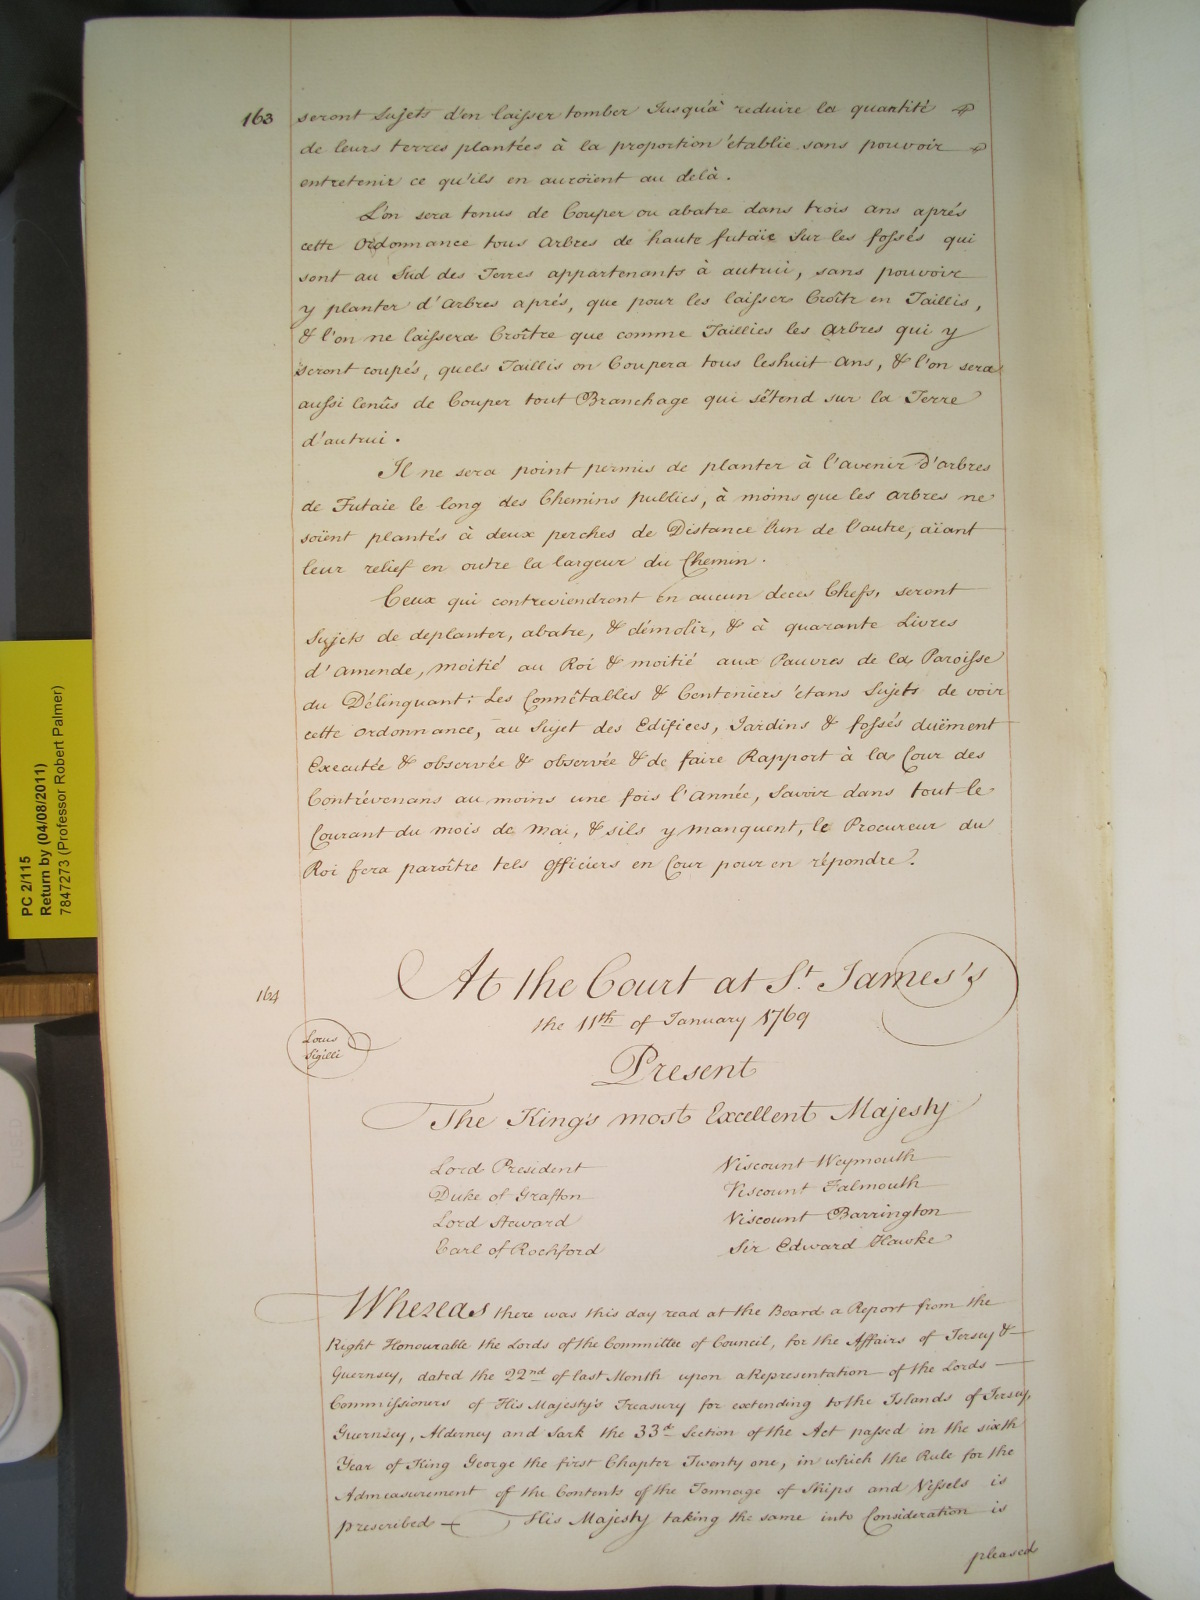 163
seront Sujets d'en laisser tomber Jusqu'à reduire la quantité
de leurs terres plantées à la proportion établie sans pouvoir
entretenir ce qu'ils en auroient au delà.
L'on sera tenus de Couper ou abatre dans trois ans aprés
cette Ordonnance tous Arbres de haute futaïe Sur les fossés qui
sont au Sud des Terres appartenants à autrui, sans pouvoir
y planter d'Arbres aprés, que pour les laisser Croîtr en Taillis,
& l'on ne laissera Croître que comme Taillies les Arbres qui y
seront coupés, quels Taillis on Coupera tous les huit Ans, & l'on sera
aussi tenûs de Couper tout Branchage qui s'étend sur la Terre
d'autrui.
Il ne sera point permis de planter à l'avenir d'arbres
de Futaie le long des Chemins publics, à moins que les arbres ne
soïent plantés à deux perches de Distance l'un de l'autre, aïant
leur relief en outre la largeur du Chemin.
Ceux qui contreviendront en aucun de ces Chefs, seront
Sujets de deplanter, abatre, & démolir, & à quarante Livres
d'Amende, moitié au Roi & moitié aux Pauvres de la Paroisse
du Délinquant: Les Connêtables & Centeniers étans Sujets de voir
cette Ordonnance, au Sujet des Edifices, Jardins & fossés duëment
Executée & observée & observée & de faire Rapport à la Cour des
Contrévenans au moins une fois l'Année, Savoir dans tout le
Courant du mois de Mai, & sils y manquent, le Procureur du
Roi fera paroître tels Officiers en Cour pour en répondre.
164
At the Court at St. James's
the 11th of January 1769
Locus
Sigilli
Present
The King's most Excellent Majesty
Lord President Viscount Weymouth
Duke of Grafton Viscount Falmouth
Lord Steward Viscount Barrington
Earl of Rochford Sir Edward Hawke
Whereas there was this day read at the Board a Report from the
Right Honourable the Lords of the Committee of Council, for the Affairs of Jersey &
Guernsey, dated the 22nd of last Month upon a Representation of the Lords
Commissioners of His Majesty's Treasury for extending to the Islands of Jersey,
Guernsey, Alderney and Sark the 33d Section of the Act passed in the sixth
Year of King George the first Chapter Twenty one, in which the Rule for the
Admeasurement of the Contents of the Tonnage of Ships and Vessels is
prescribed His Majesty taking the same into Consideration is
pleased
PC 2/115
Return by (04/08/2011)
7847273 (Professor Robert Palmer)